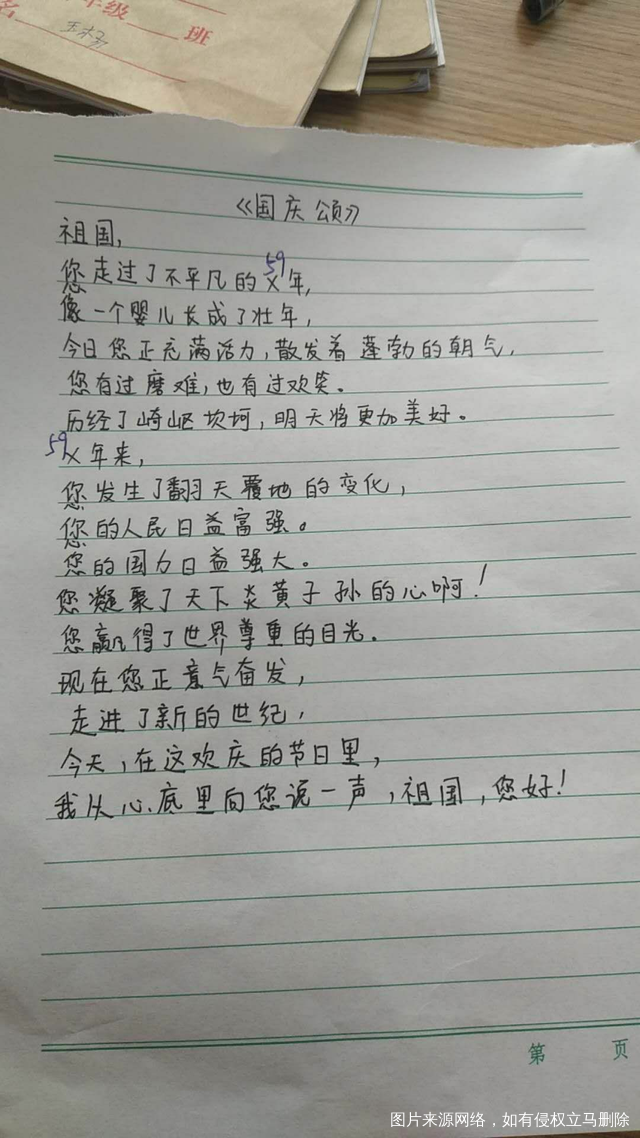 年级 班
名
《国庆颂》
祖国,
您走过了不平凡的59X年,
像一个婴儿长成了壮年,
今日您正充满活力,散发着蓬勃的朝气,
您有过磨难,也有过欢笑。
历经了崎岖坎坷,明天将更加美好。
59X年来,
您发生了翻天覆地的变化,
您的人民日益富强。
您的国力日益强大。
您凝聚了天下炎黄子孙的心啊!
您赢得了世界尊重的目光。
现在您正意气奋发,
走进了新的世纪,
今天,在这欢庆的节日里,
我从心底里向您说一声,祖国,您好!
第 页
图片来源网络，如有侵权立马删除